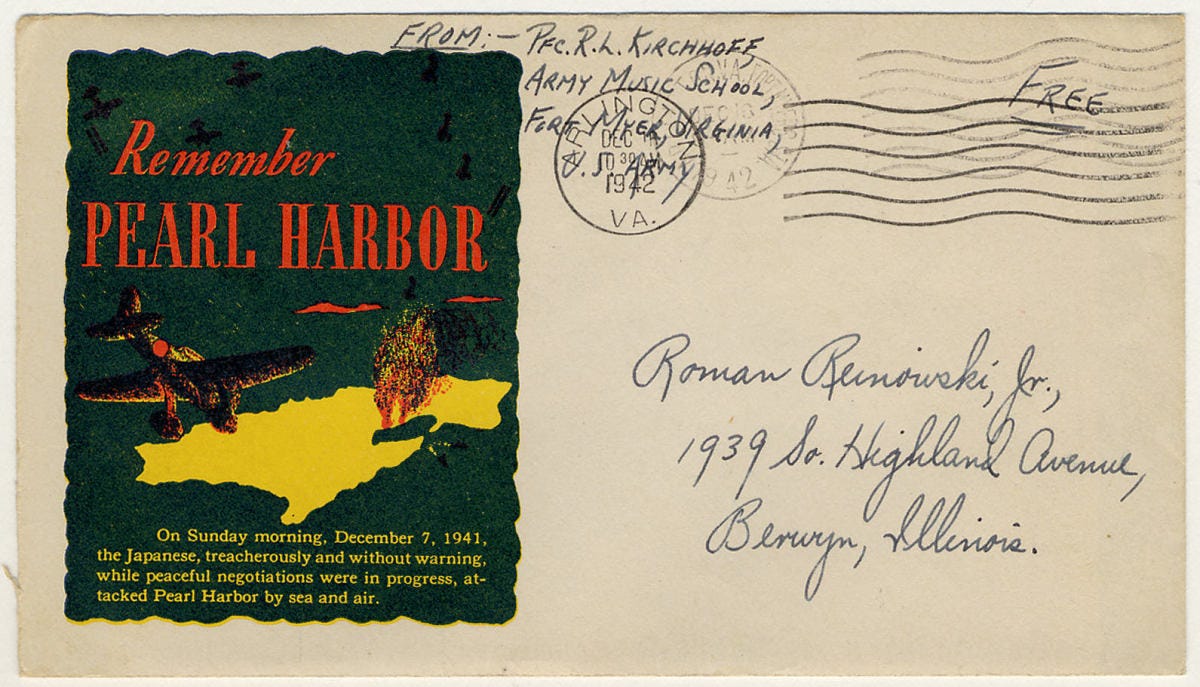 FROM:- PFC. R. L. KIRCHHOFF,
ARMY MUSIC SCHOOL,
FORT MYER, VIRGINIA,
U.S. ARMY
FREE
ARLINGTON
DEC
30 AM
1942
VA.
VA.
1942
Remember
PEARL HARBOR
On Sunday morning, December 7, 1941,
the Japanese, treacherously and without warning,
while peaceful negotiations were in progress, at-
tacked Pearl Harbor by sea and air.
Roman Reinowski, Jr.,
1939 So. Highland Avenue,
Berwyn, Illinois.